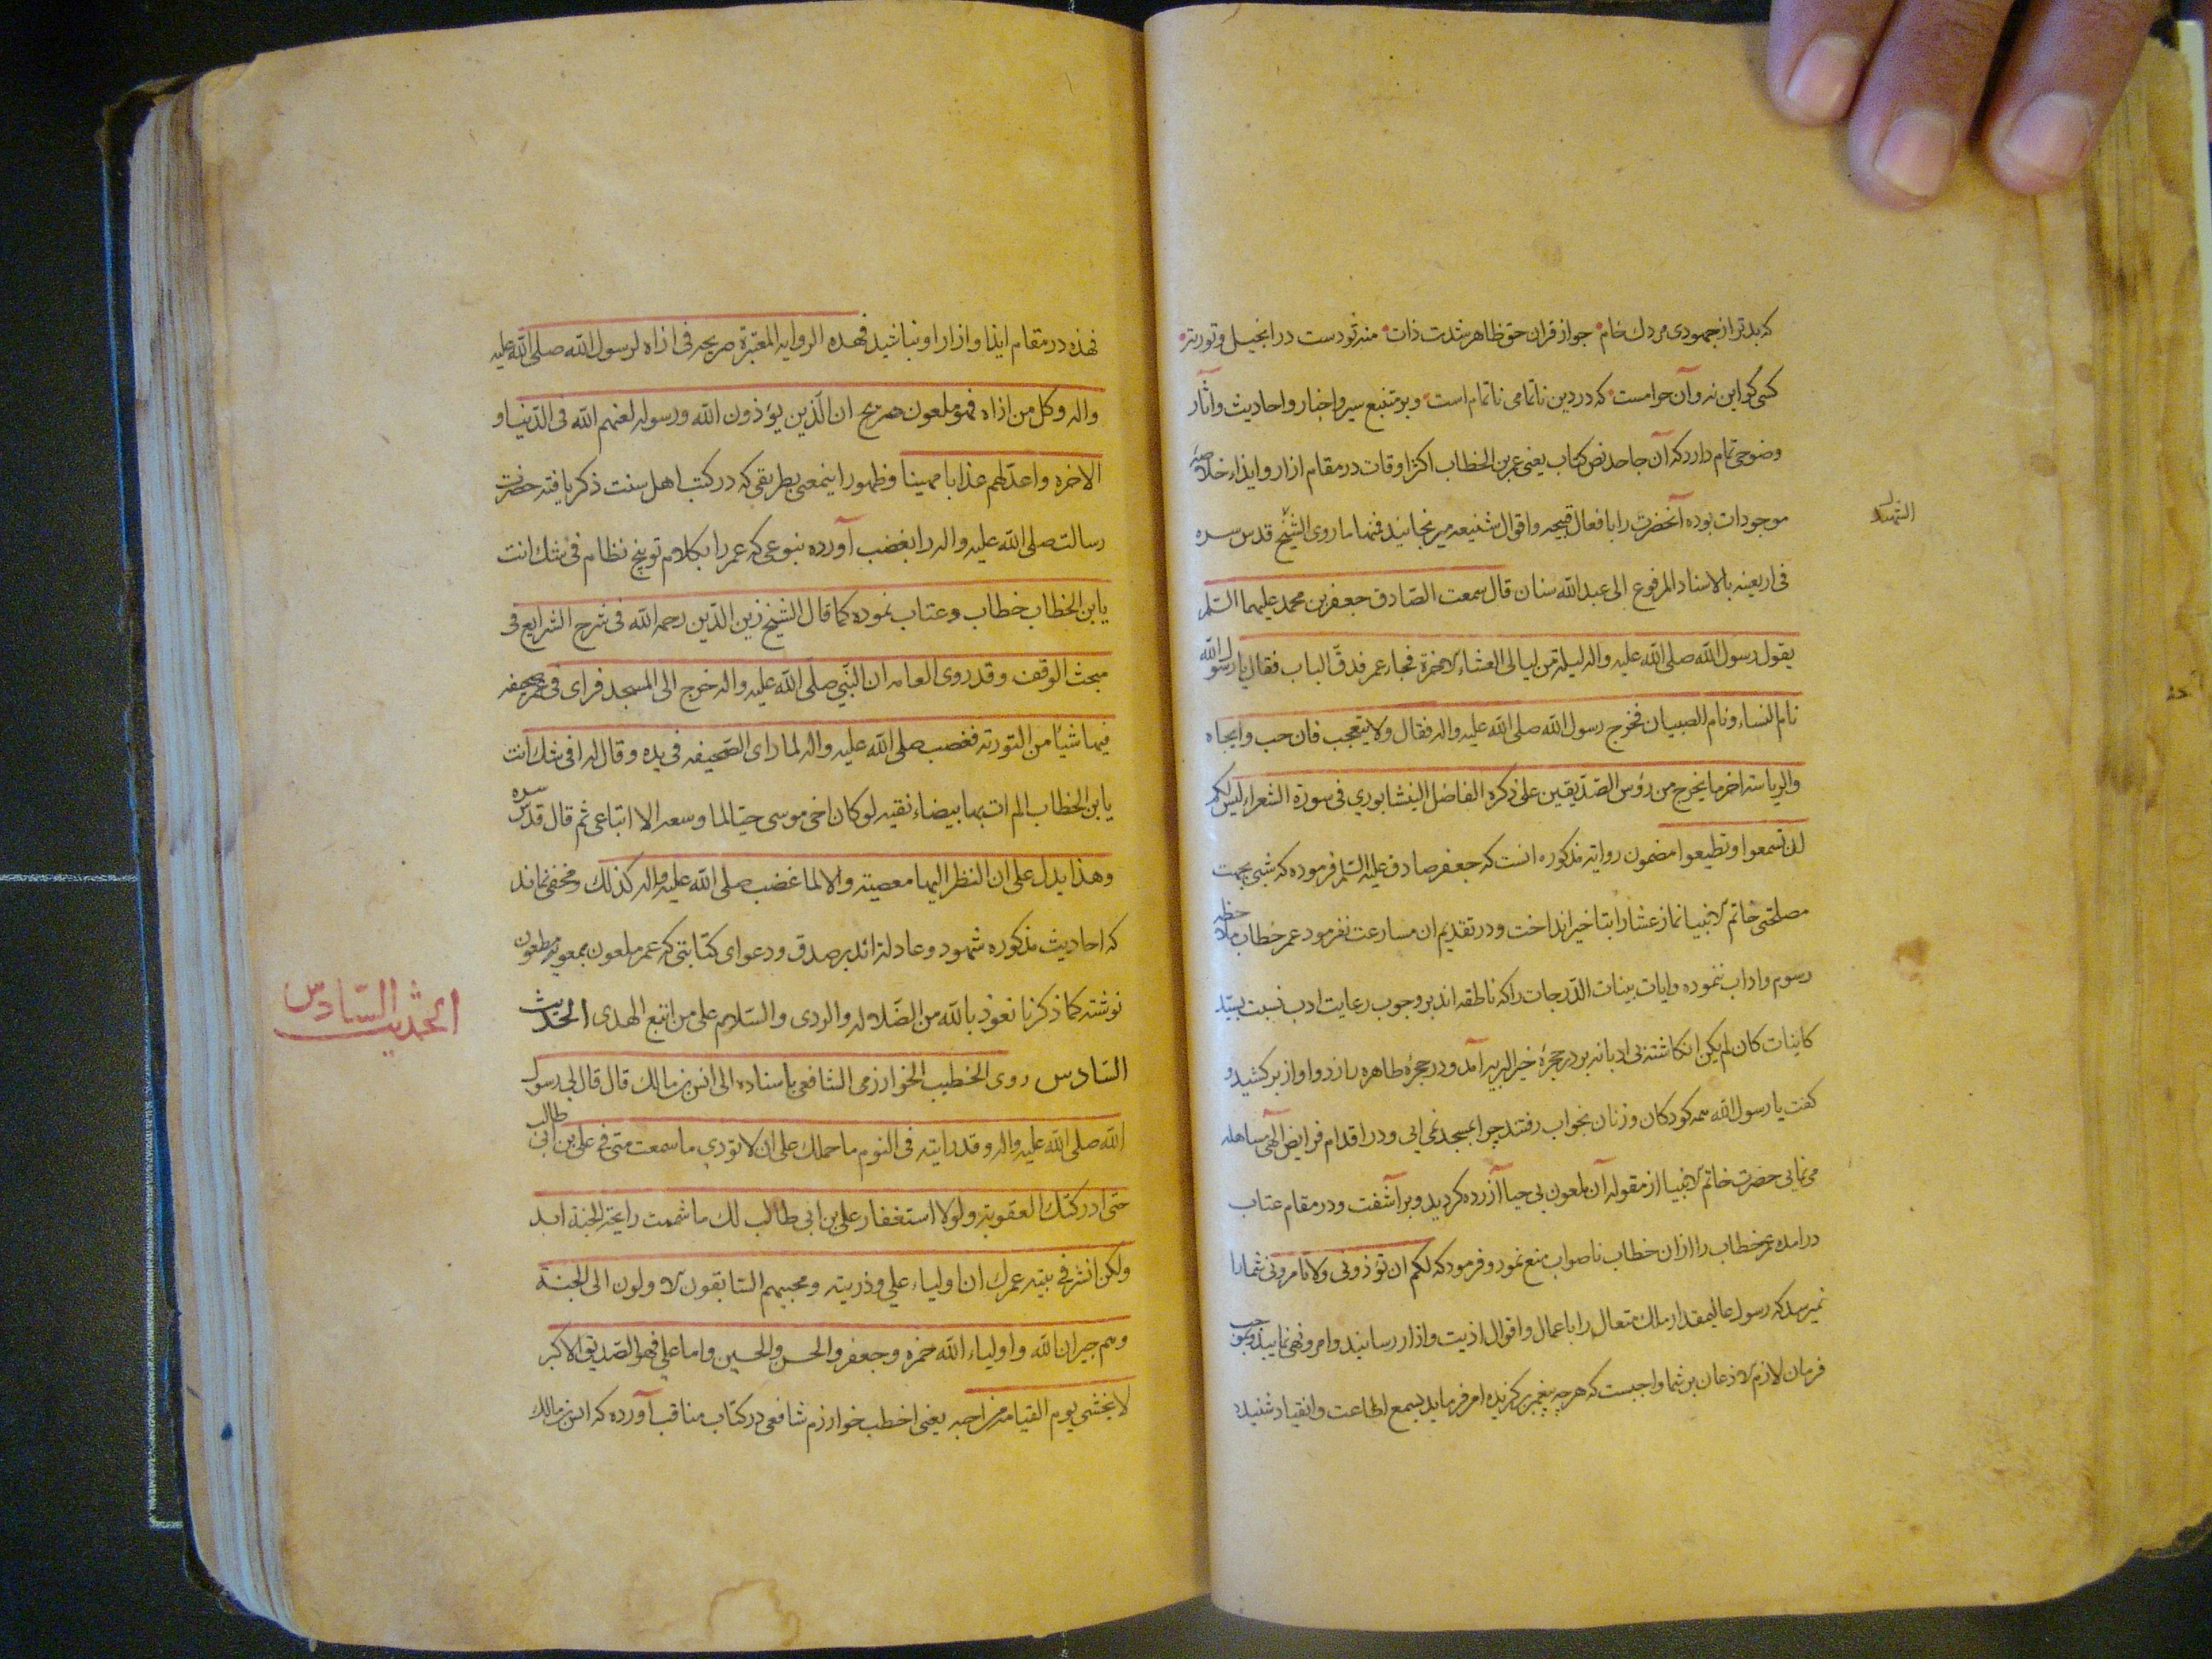 که بدتر از جهودی مردك خام جواز قران حق ظاهر شدت ذات منه تودست در انجیل و توریة
کسی کو این نه و آن حوامست که در دین ناتمامی ناتمام است و بر متتبع سیر و اخبار و احادیث و آثار
وضوحی تمام دارد که آن جاحد نص کتاب یعنی عمر بن الخطاب اکثر اوقات در مقام ازار و ایذاء خلاصهٔ
موجودات بوده آنحضرت را بافعال قبیحه و اقوال شنیعه میرنجانید فمنها ما روی الشیخ قدس سره
الشهید
فی اربعینه بالاسناد المرفوع الی عبد الله سنان قال سمعت الصادق جعفر بن محمد علیهما السلم
یقول رسول الله صلی الله علیه واله لیلة من لیالی العشاء الاخرة فجاء عمر فدق الباب فقال یا رسول الله
نام النساء و نام الصبیان فخرج رسول الله صلی الله علیه واله فقال ولا یتعجب فان حب و ایجاه
والریاسة اخر ما یخرج من رؤس الصدیقین علی ذکره الفاضل النیشابوری فی سورة الشعراء لیس لکم
ان تسمعوا و تطیعوا مضمون روایة مذکوره انست که جعفر صادق علیه السلم فرموده که شبی بجهت
مصلحتی خاتم الانبیا نماز عشا را بتاخیر انداخت و در تقدیم ان مسارعت نفرمود عمر خطاب ملاحظه
رسوم و اداب ننموده وایات بینات الدرجات را که ناطقه اند بر وجوب رعایت ادب نسبت بسید
کاینات کان لم یکن انکاشته بی ادبانه بر در حجرهٔ خیر البریه آمد و در حجرهٔ طاهره را زد و اواز بر کشید و
کفت یا رسول الله همه کودکان و زنان بخواب رفتند چرا بمسجد نمی ایی و در اقدام فرایض آلهی مساهله
می نمایی حضرت خاتم الانبیا از مقوله آن ملعون بی حیا آزرده کردید و بر آشفت و در مقام عتاب
درامده عمر خطاب را ازان خطاب ناصواب منع نمود و فرمود که لکم ان تؤذونی ولا تامرونی شما را
نمیرسد که رسول عالیمقدار ملك متعال را باعمال و اقوال اذیت و ازار رسانید و امر و نهی نمایید و بموجب
فرمان لازم الاذعان بر شما واجبست که هر چه پیغمبر برکزیده امر فرماید بسمع اطاعت و انقیاد شنید
نهذه در مقام ایذا و ازار او نباشید فهذه الروایه المعتبرة صریحه فی اذاه لرسول الله صلی الله علیه
واله و کل من اذاه فهو ملعون صریح ان الذین یؤذون الله ورسوله لعنهم الله فی الدنیا و
الاخره واعد لهم عذابا مهینا و ظهور اینمعنی بطریقی که در کتب اهل سنت ذکر یافته حضرت
رسالت صلی الله علیه واله را بغضب آورده بنوعی که عمر را بکلام توبیخ نظام فی شك انت
یابن الخطاب خطاب و عتاب نموده کما قال الشیخ زین الدین رحمه الله فی شرح الشرایع فی
مبحث الوقف وقد روی العامه ان النبی صلی الله علیه واله خرج الی المسجد فرای فی صحیفه
فیها شیئا من التوریة فغضب صلی الله علیه واله لما رای الصحیفه فی یده وقال له افی شك انت
یابن الخطاب الم ات بها بیضاء نقیه لو کان اخی موسی حیا لما وسعه الا اتباعی ثم قال قدس سره
وهذا یدل علی ان النظر الیها معصیة والا لما غضب صلی الله علیه واله کذلك و مخفی نماند
که احادیث مذکوره شهود و عادلة اند بر صدق و دعوای کتابتی که عمر ملعون
نوشته کما ذکرنا نعوذ بالله من الضلاله والردی والسلام علی من اتبع الهدی الحدیث
الحدیث السادس
السادس روی الخطیب الخوارزمی الشافعی باسناده الی انس بن مالك قال قال لی رسول
الله صلی الله علیه واله وقد رایته فی النوم ما حملك علی ان لا تودی ما سمعت منی فی علی بن ابی طالب
حتی ادرکتك العقوبة ولولا استغفار علی بن ابی طالب لك ما شممت رایحة الجنة ابد
ولکن انشر فی بقیة عمرك ان اولیاء علی وذریته ومحبیهم السابقون الاولون الی الجنة
وهم جیران الله واولیاء الله حمزه وجعفر والحسن والحسین واما علی فهو الصدیق الاکبر
لا یخشی یوم القیامة من احبه یعنی اخطب خوارزم شافعی در کتاب مناقب آورده که انس بن مالك